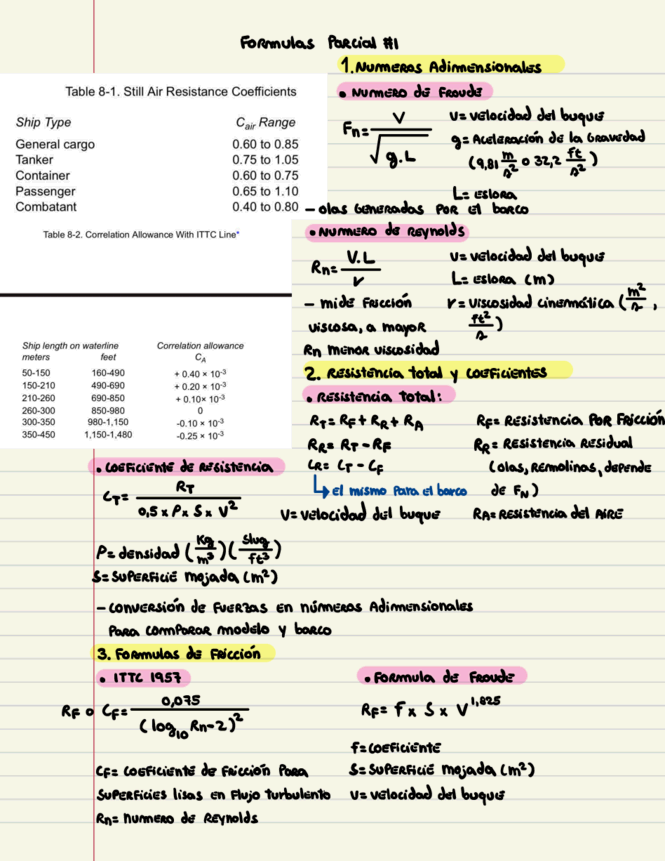 Formulas Parcial #1
1. Numeros Adimensionales
Table 8-1. Still Air Resistance Coefficients
Ship Type C_air Range
General cargo 0.60 to 0.85
Tanker 0.75 to 1.05
Container 0.60 to 0.75
Passenger 0.65 to 1.10
Combatant 0.40 to 0.80
Table 8-2. Correlation Allowance With ITTC Line*
Ship length on waterline Correlation allowance
meters feet C_A
50-150 160-490 + 0.40 × 10^-3
150-210 490-690 + 0.20 × 10^-3
210-260 690-850 + 0.10× 10^-3
260-300 850-980 0
300-350 980-1,150 -0.10 × 10^-3
350-450 1,150-1,480 -0.25 × 10^-3
• Numero de Froude
Fn = V / √g.L
V= velocidad del buque
g= Aceleración de la Gravedad
(9,81 m/s² o 32,2 ft/s²)
L= eslora
- olas Generadas Por el barco
• Numero de Reynolds
Rn = V.L / ν
V= velocidad del buque
L= eslora (m)
ν= viscosidad cinemática (m²/s,
ft²/s)
- mide Fricción
viscosa, a mayor
Rn menor viscosidad
2. Resistencia total y coeficientes
• Resistencia Total:
R_T = R_F + R_R + R_A
R_R = R_T - R_F
C_R = C_T - C_F
↳ el mismo Para el barco
V= velocidad del buque
R_F= Resistencia Por Fricción
R_R= Resistencia Residual
(olas, Remolinos, depende
de F_N)
R_A= Resistencia del AIRE
• Coeficiente de Resistencia
C_T = R_T / 0,5 x ρ x S x V²
ρ= densidad (Kg/m³)(Slug/ft³)
S= Superficie mojada (m²)
- conversión de Fuerzas en números Adimensionales
Para comparar modelo y barco
3. Formulas de Fricción
• ITTC 1957
R_F o C_F = 0,075 / (log₁₀ Rn-2)²
C_F= Coeficiente de Fricción Para
Superficies lisas en Flujo turbulento
Rn= numero de Reynolds
• Formula de Froude
R_F= f x S x V^1,825
f= coeficiente
S= Superficie mojada (m²)
V= velocidad del buque